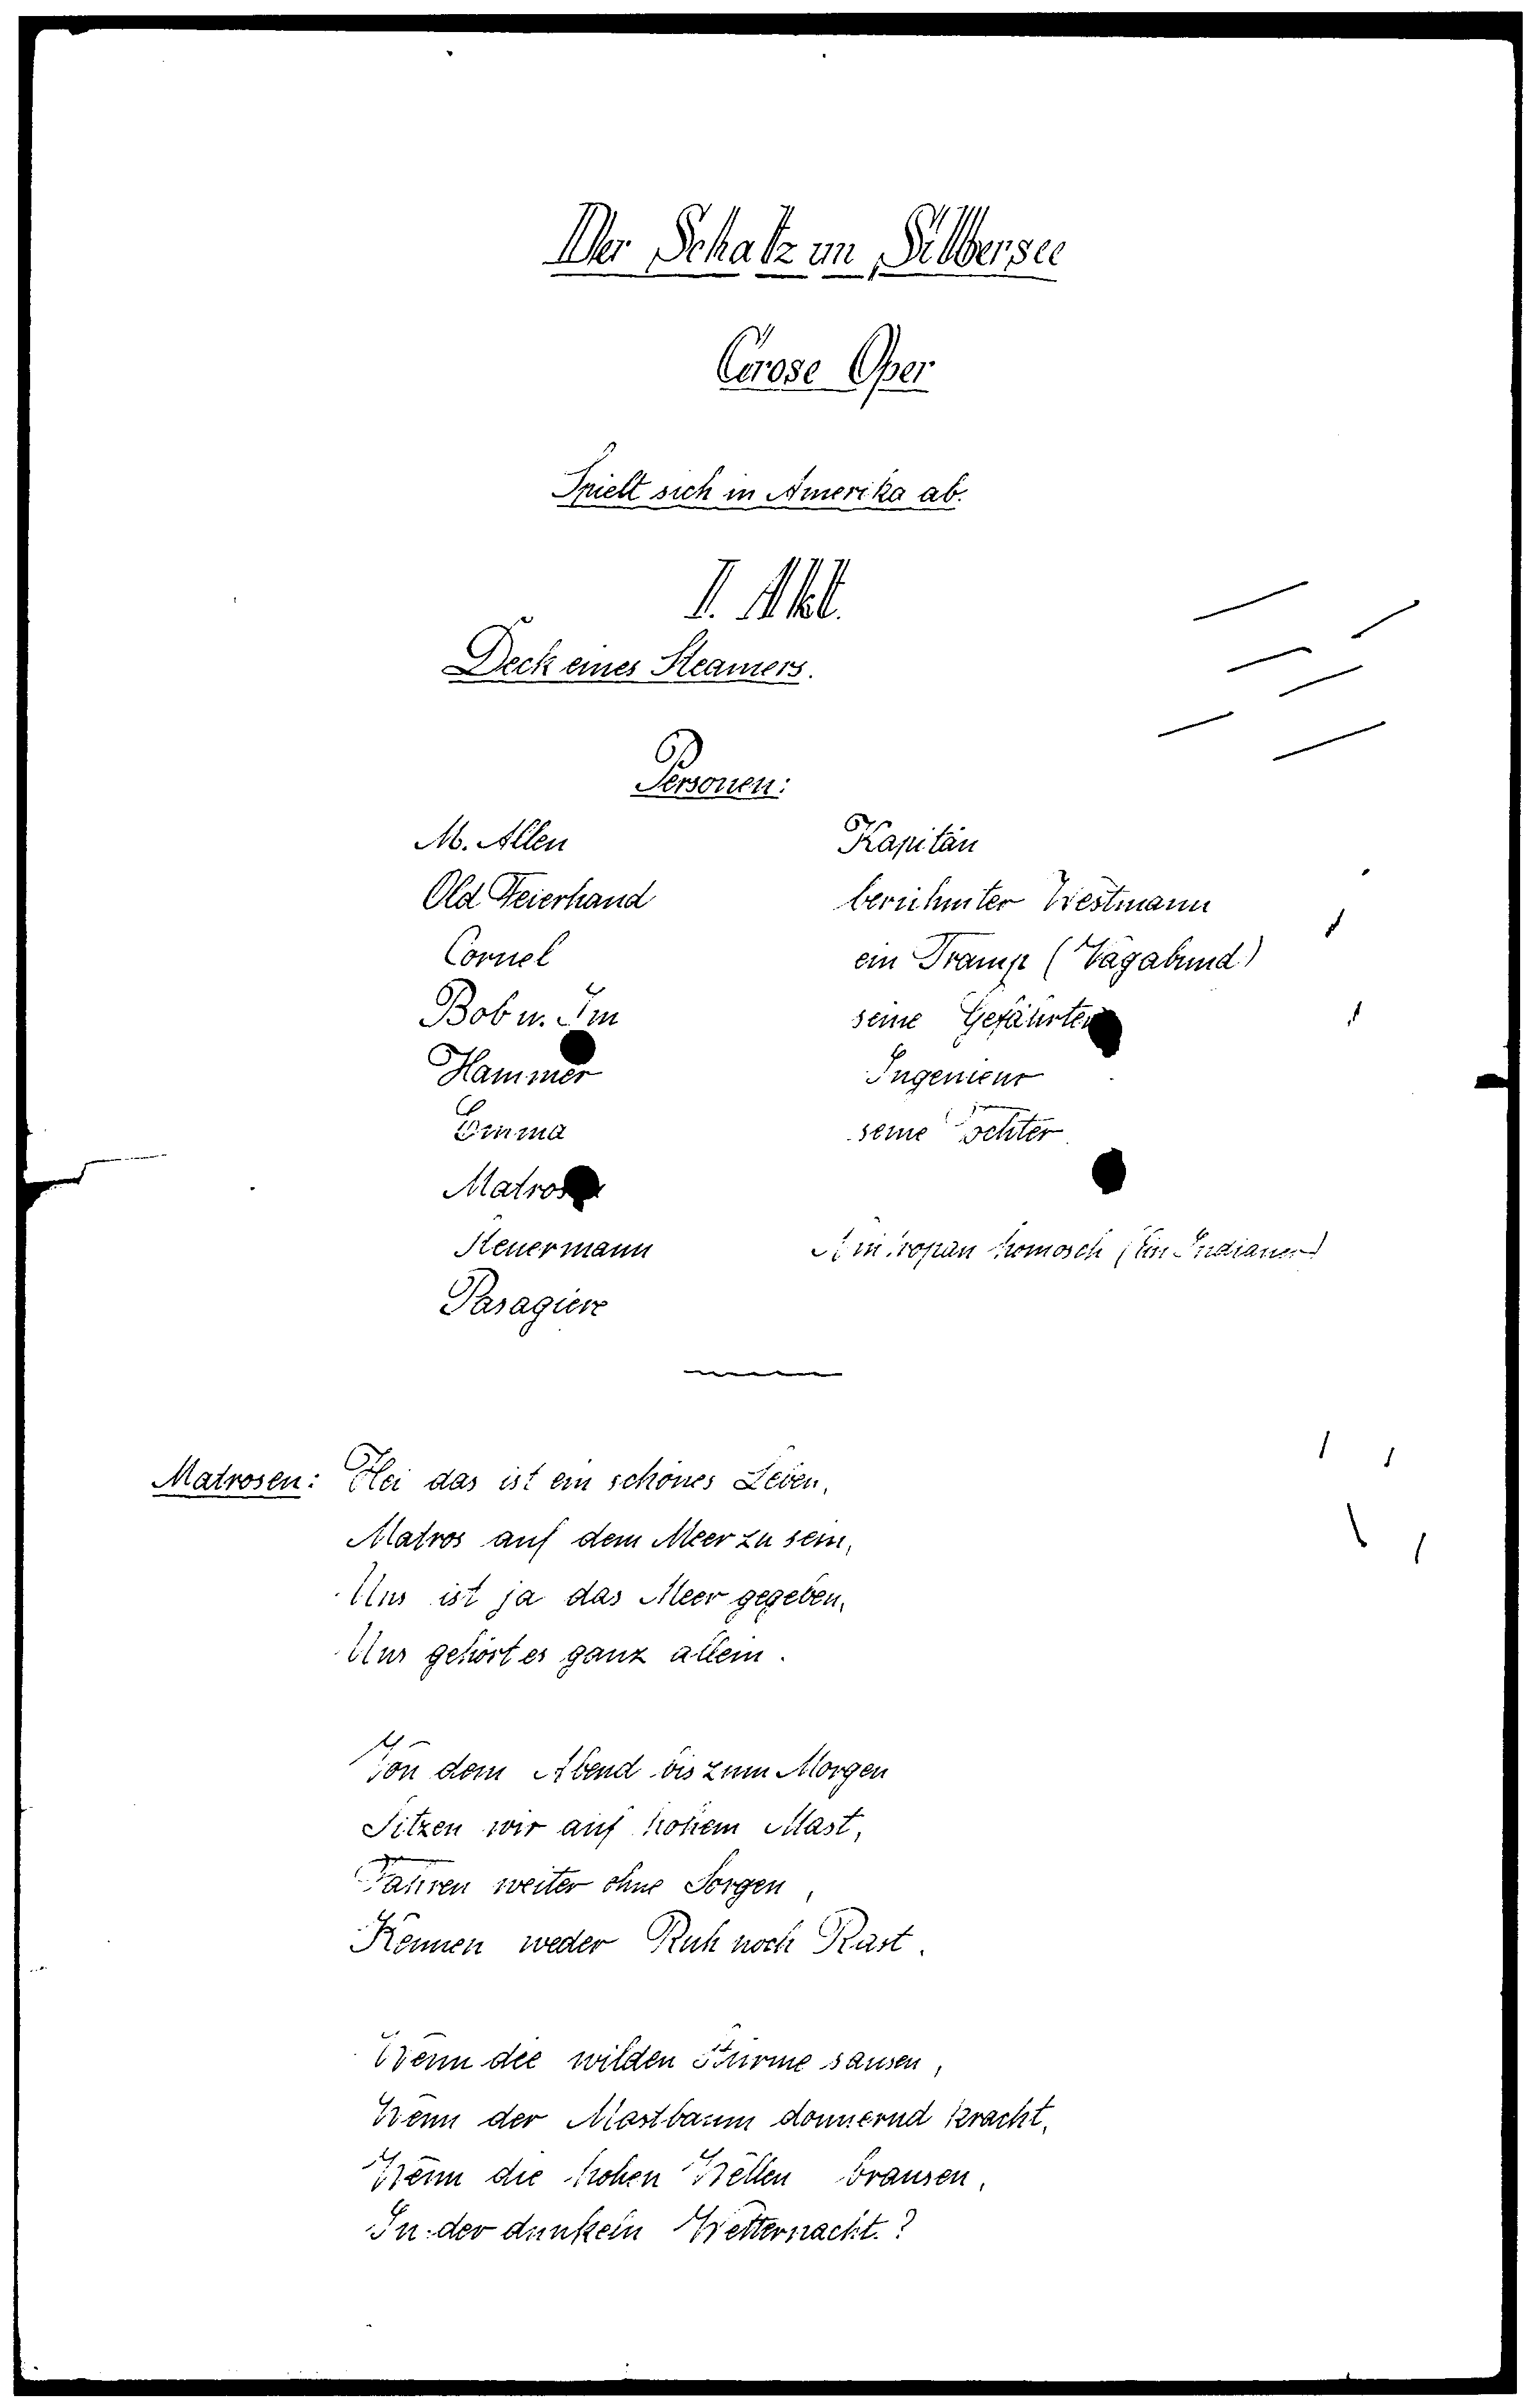 Der Schatz im Silbersee
Grose Oper
Spielt sich in Amerika ab.
I. Akt.
Deck eines Steamers.
Personen:
M. Allen Kapitän
Old Feierhand berühmter Westmann
Cornel ein Tramp (Vagabund)
Bob u. Im seine Gefährten
Hammer Ingenieur
Emma seine Tochter
Matrosen
Steuermann (Ein Indianer)
Pasagiere
Matrosen: Hei das ist ein schönes Leben,
Matros auf dem Meer zu sein,
Uns ist ja das Meer gegeben,
Uns gehört es ganz allein.
Von dem Abend bis zum Morgen
Sitzen wir auf hohem Mast,
Fahren weiter ohne Sorgen,
Kennen weder Ruh noch Rast.
Wenn die wilden Stürme sausen,
Wenn der Mastbaum donnernd kracht,
Wenn die hohen Wellen brausen,
In der dunkeln Wetternacht.?